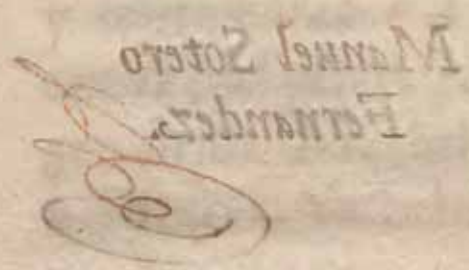 Manuel Sotero
Fernandez.